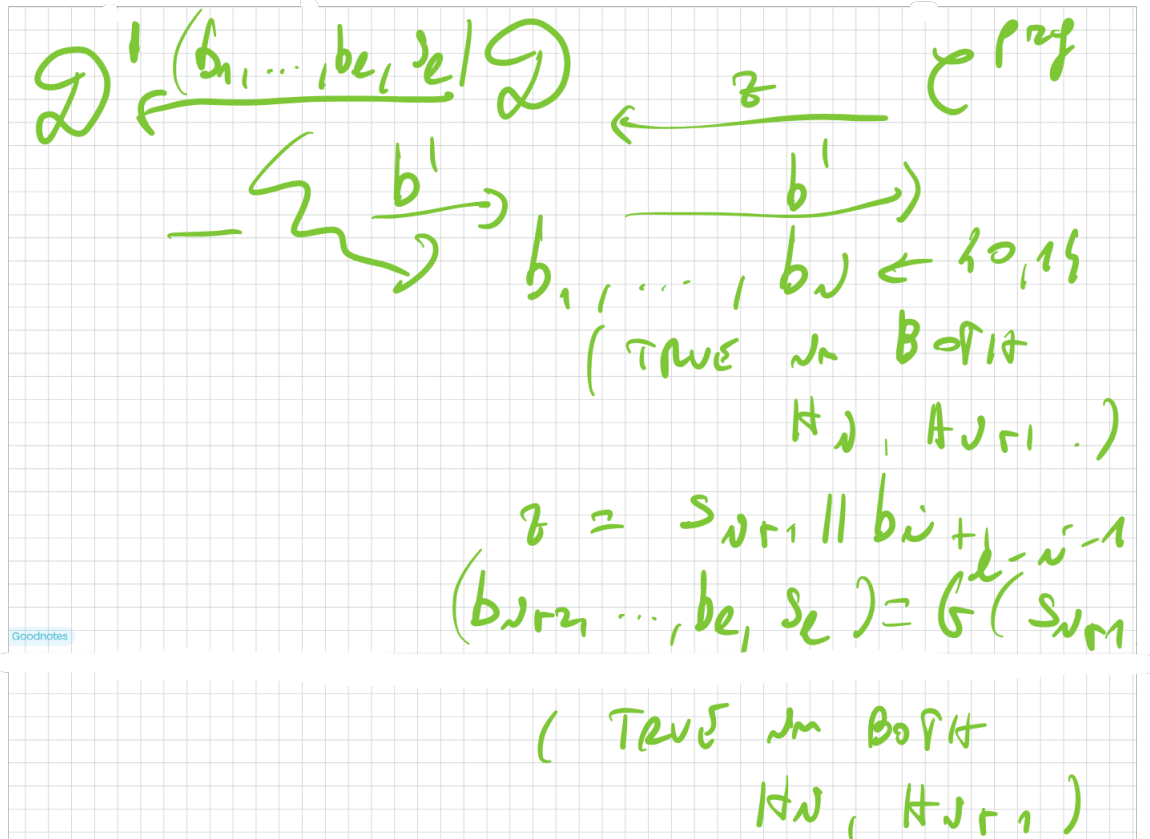 D' (b₁, ..., bₗ, sₗ) D C^prg
z
b' b'
b₁, ..., bᵢ ← {0,1}
( TRUE in BOTH
Hᵢ, Hᵢ₊₁ .)
z = sᵢ₊₁ || bᵢ₊₁
(bᵢ₊₂, ..., bₗ, sₗ) = G^(l-i-1) (sᵢ₊₁
Goodnotes
( TRUE in BOTH
Hᵢ, Hᵢ₊₁ )